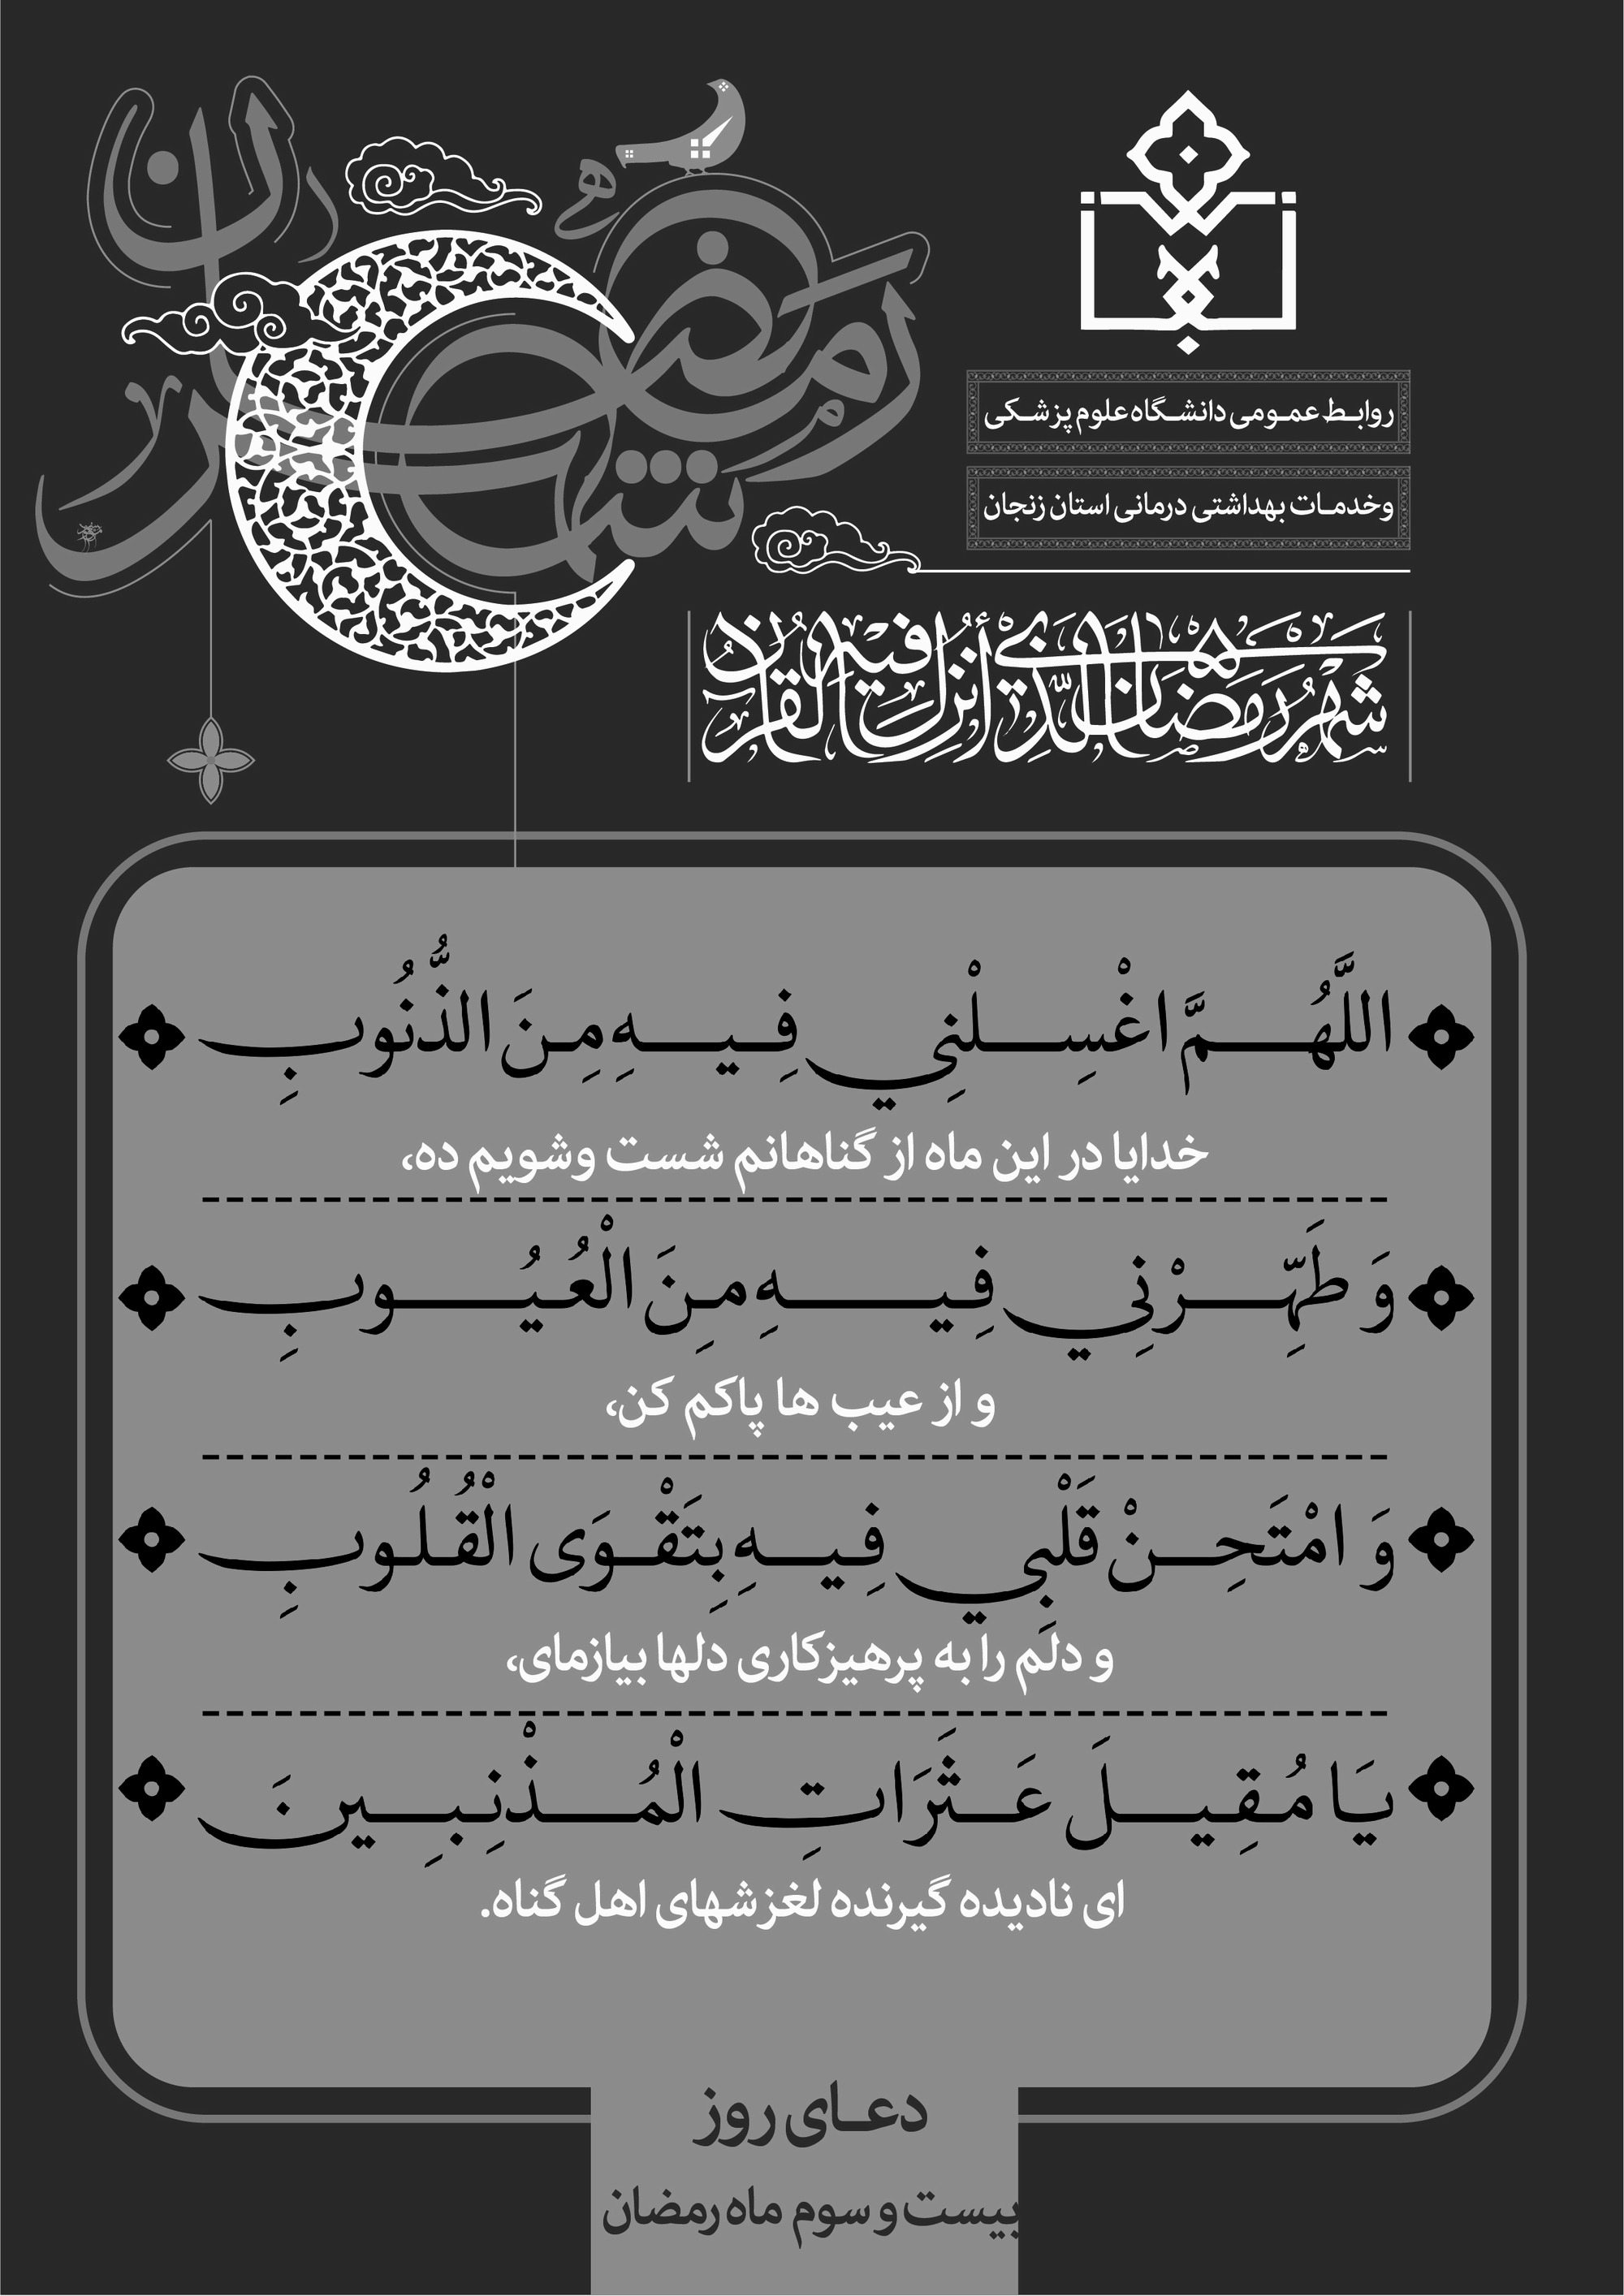 شهر رمضان
روابط عمومی دانشگاه علوم پزشکی
وخدمات بهداشتی درمانی استان زنجان
شهر رمضان الذی أنزل فیه القرآن
اللَّهُمَّ اغْسِلْنِي فِيهِ مِنَ الذُّنُوبِ
خدایا در این ماه از گناهانم شست وشویم ده،
وَ طَهِّرْنِي فِيهِ مِنَ الْعُيُوبِ
و از عیب ها پاکم کن،
وَ امْتَحِنْ قَلْبِي فِيهِ بِتَقْوَى الْقُلُوبِ
و دلم را به پرهیزکاری دلها بیازمای،
يَا مُقِيلَ عَثَرَاتِ الْمُذْنِبِينَ
ای نادیده گیرنده لغزشهای اهل گناه.
دعای روز
بیست و سوم ماه رمضان